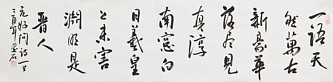 一语天
然万古
新豪华
落尽见
真淳
南窗白
日羲皇
上未害
渊明是
晋人
元好问诗一首